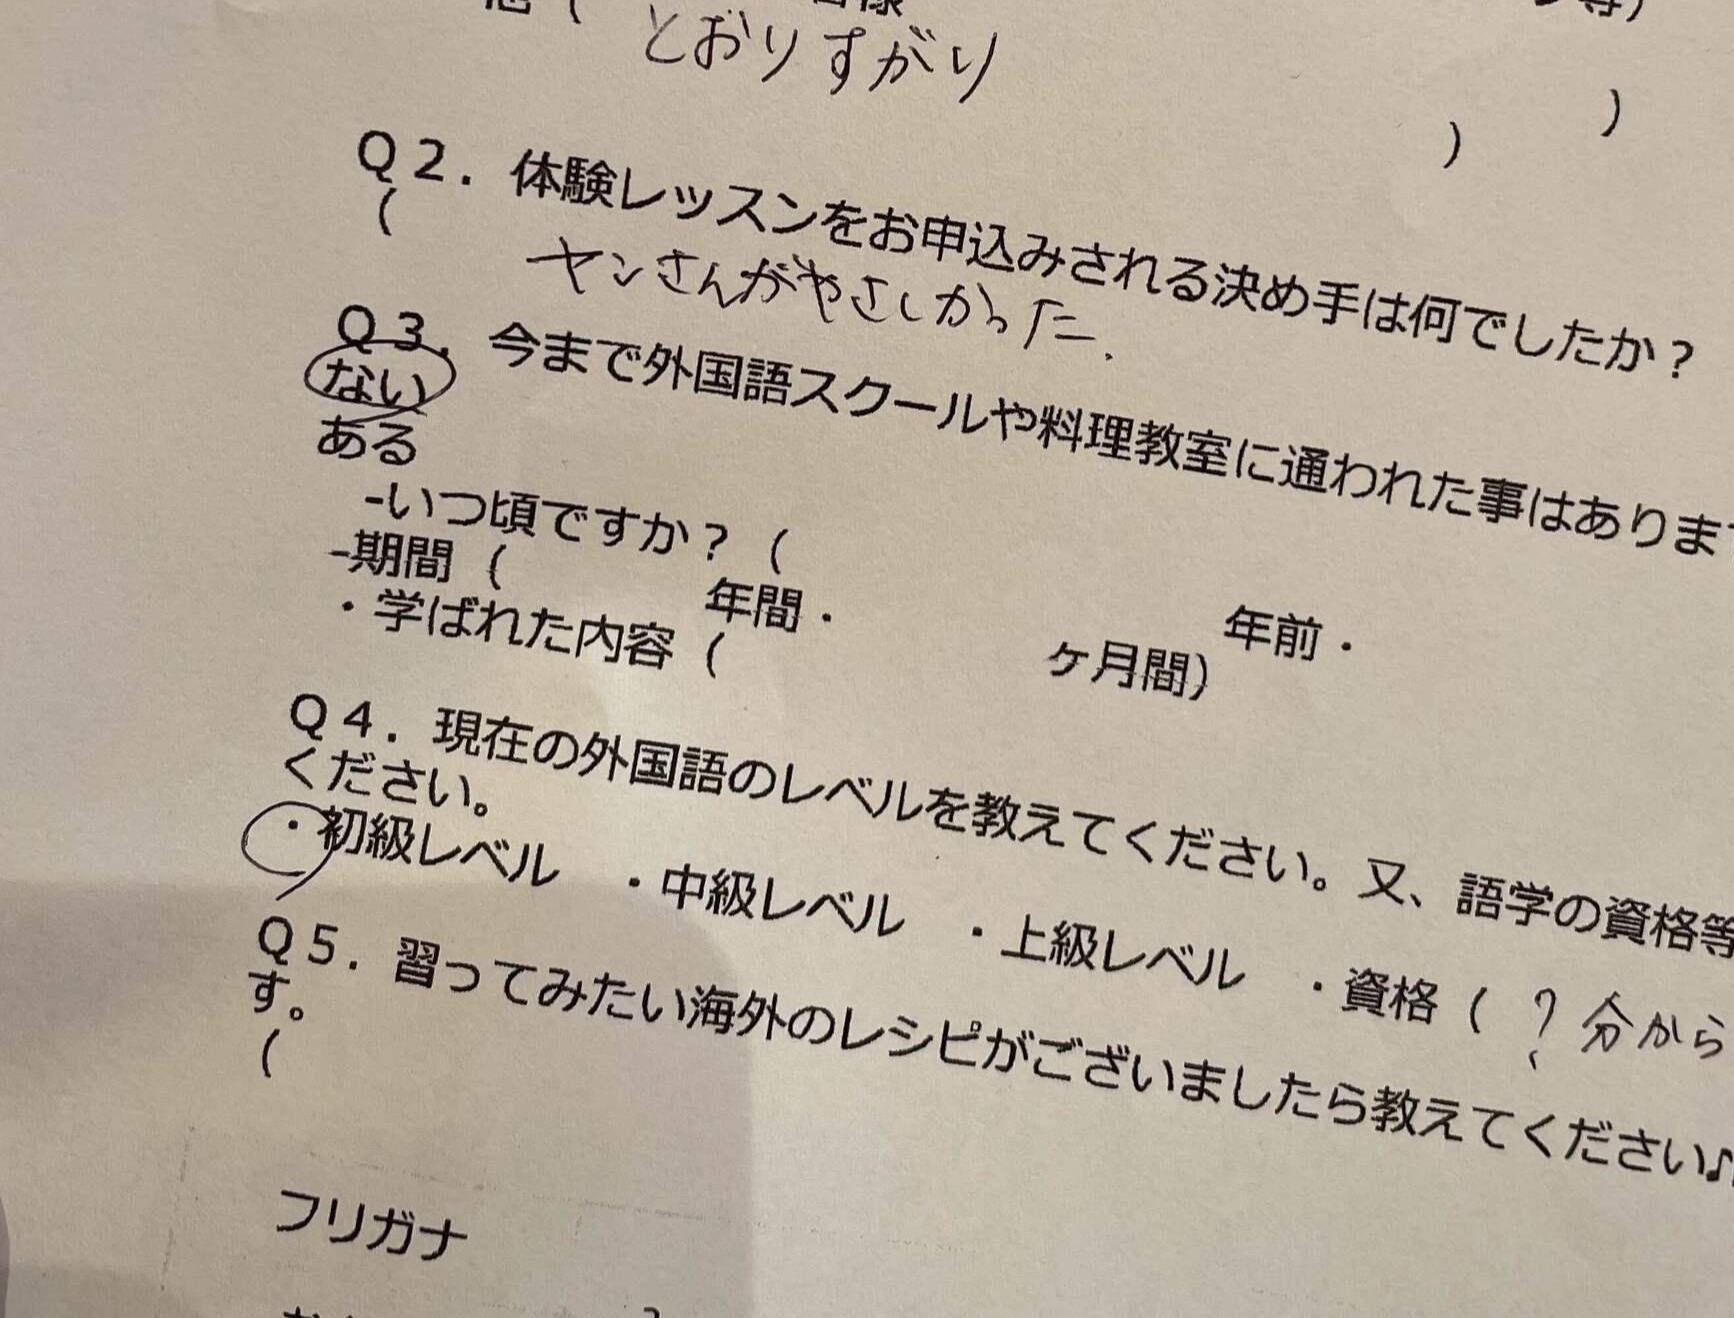 とおりすがり
)
)
Q2. 体験レッスンをお申込みされる決め手は何でしたか?
(
ヤンさんがやさしかった.
Q3. 今まで外国語スクールや料理教室に通われた事はありま
ない
ある
-いつ頃ですか? ( 年前・
-期間 ( 年間・ ヶ月間)
・学ばれた内容 (
Q4. 現在の外国語のレベルを教えてください。又、語学の資格等
ください。
・初級レベル ・中級レベル ・上級レベル ・資格 ( ? 分から
Q5. 習ってみたい海外のレシピがございましたら教えてください♪
す。
(
フリガナ